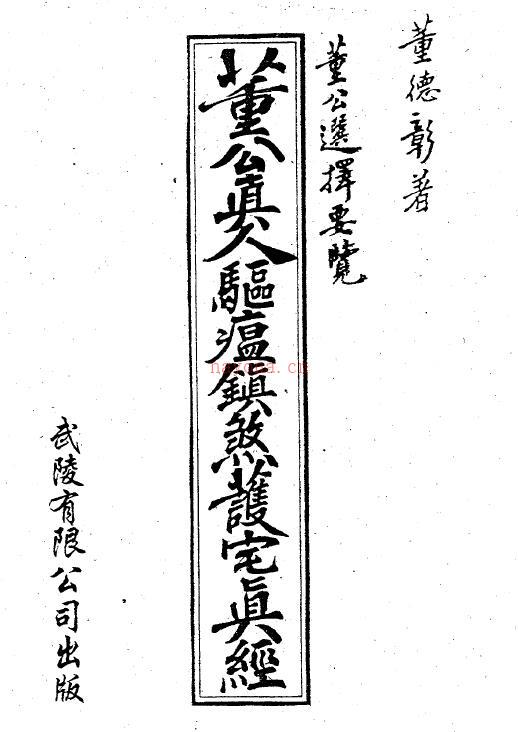 董德彰著
董公選擇要覽
董公眞人驅瘟鎭煞護宅眞經
武陵有限公司出版